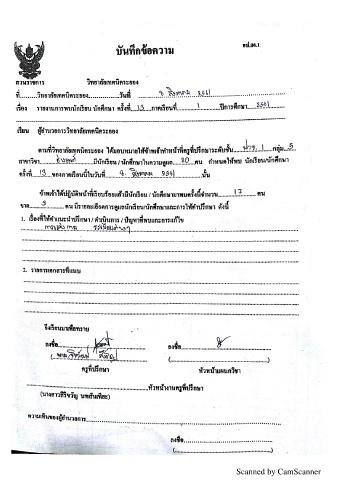 อป.ฮค.1
บันทึกข้อความ
ส่วนราชการ วิทยาลัยเทคนิคระยอง
ที่ วิทยาลัยเทคนิคระยอง วันที่ 8 สิงหาคม 2561
เรื่อง รายงานการพบนักเรียน นักศึกษา ครั้งที่ 13 ภาคเรียนที่ 1 ปีการศึกษา 2561
เรียน ผู้อำนวยการวิทยาลัยเทคนิคระยอง
ตามที่วิทยาลัยเทคนิคระยอง ได้มอบหมายให้ข้าพเจ้าทำหน้าที่ครูที่ปรึกษาระดับชั้น ปวช. 1 กลุ่ม 5
สาขาวิชา มีนักเรียน / นักศึกษาในความดูแล 20 คน กำหนดให้พบ นักเรียน/นักศึกษา
ครั้งที่ 13 ของภาคเรียนนี้ในวันที่ 8 สิงหาคม 2561 นั้น
ข้าพเจ้าได้ปฏิบัติหน้าที่เรียบร้อยแล้วมีนักเรียน / นักศึกษามาพบครั้งนี้จำนวน 17 คน
ขาด 3 คน มีรายละเอียดการดูแลนักเรียน/นักศึกษาและการให้คำปรึกษา ดังนี้
1. เรื่องที่ให้คำแนะนำปรึกษา / ดำเนินการ / ปัญหาที่พบและการแก้ไข
การแต่งกาย ระเบียบต่างๆ
2. รายการเอกสารที่แนบ
จึงเรียนมาเพื่อทราบ
ลงชื่อ ลงชื่อ
ครูที่ปรึกษา หัวหน้าแผนกวิชา
หัวหน้างานครูที่ปรึกษา
ความเห็นของผู้อำนวยการ
ลงชื่อ
Scanned by CamScanner